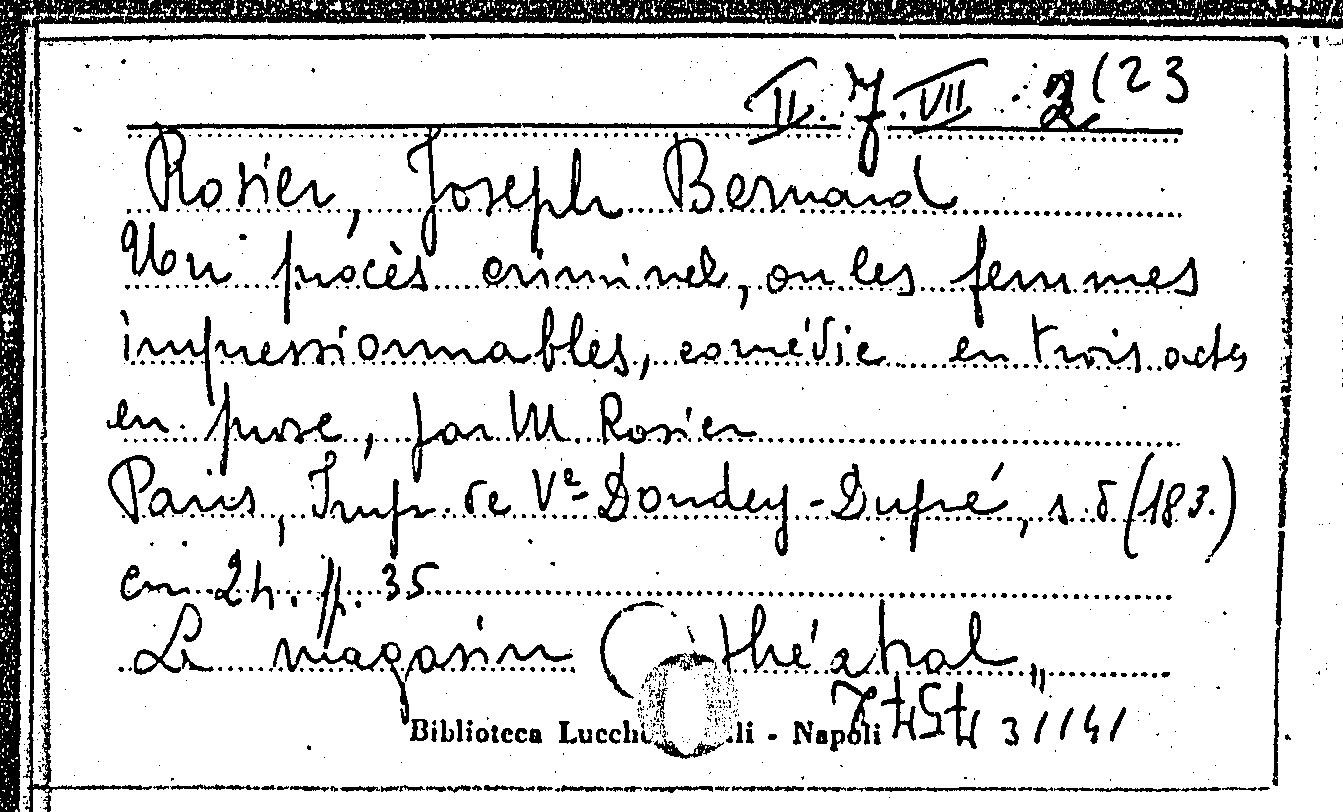 II. J. VII. 2(23
Rosier, Joseph Bernard
Un procès criminel, ou les femmes
impressionnables, comédie en trois actes
en prose, par M. Rosier
Paris, Impr. de Vᵉ Dondey-Dupré, s.d (183.)
cm 24. pp. 35
Le magasin théatral
Biblioteca Lucch li - Napoli